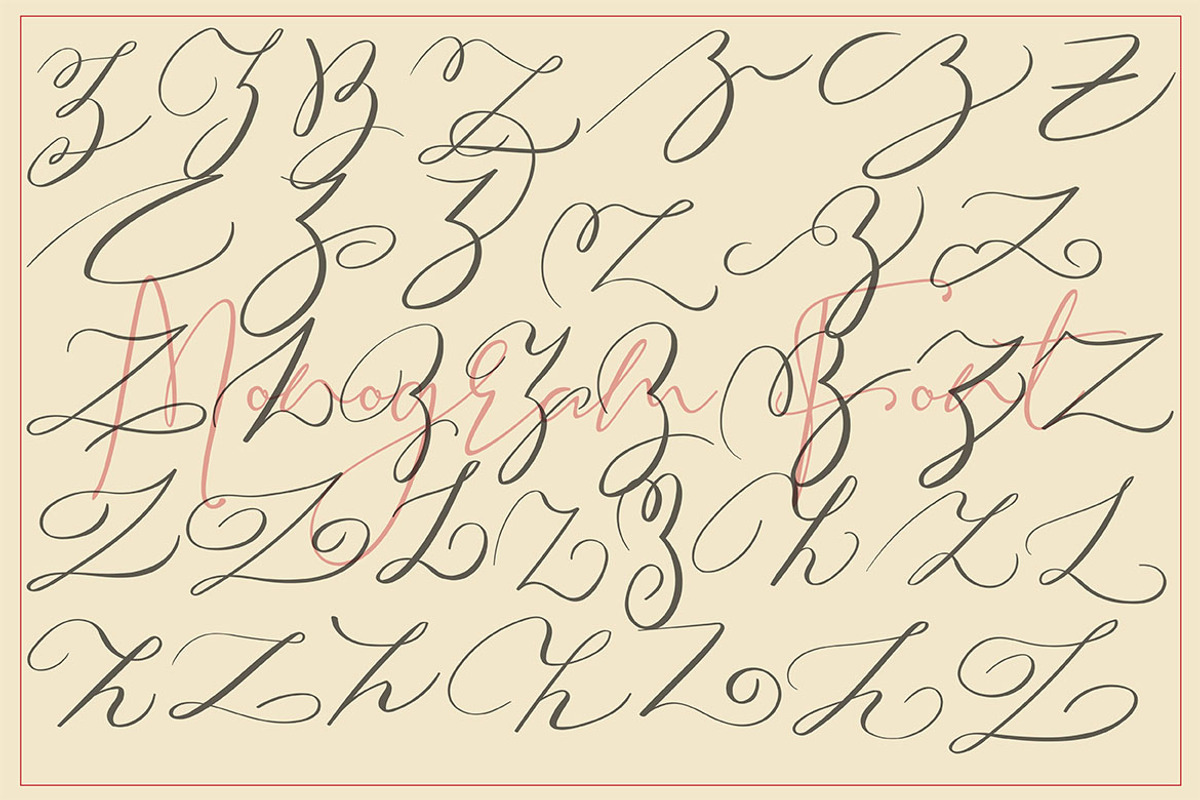 Z Z Z Z Z Z Z
Z Z Z Z Z Z
Monogram Font
Z Z Z Z Z Z Z Z
Z Z Z Z Z Z Z Z
Z Z Z Z Z Z Z